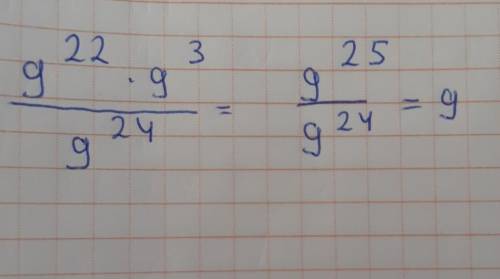 9^22 · 9^3 / 9^24 = 9^25 / 9^24 = 9